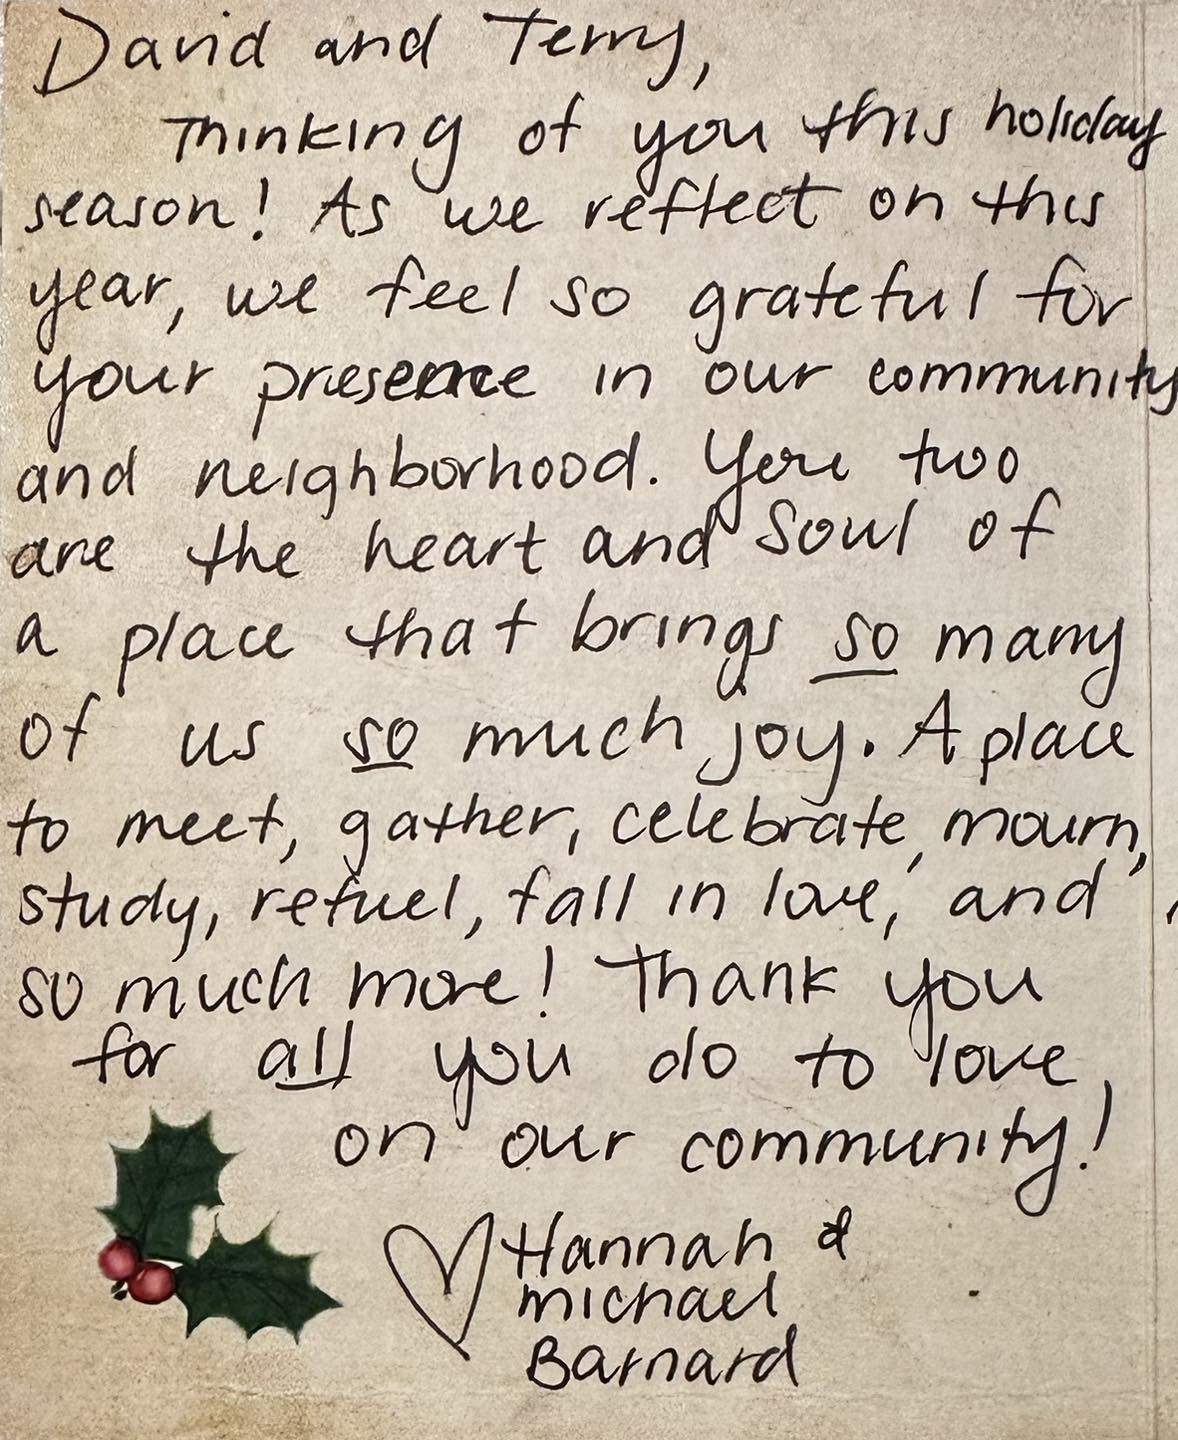 David and Terry,
Thinking of you this holiday
season! As we reflect on this
year, we feel so grateful for
your presence in our community
and neighborhood. You two
are the heart and soul of
a place that brings so many
of us so much joy. A place
to meet, gather, celebrate, mourn,
study, refuel, fall in love, and
so much more! Thank you
for all you do to love
on our community!
Hannah &
Michael
Barnard